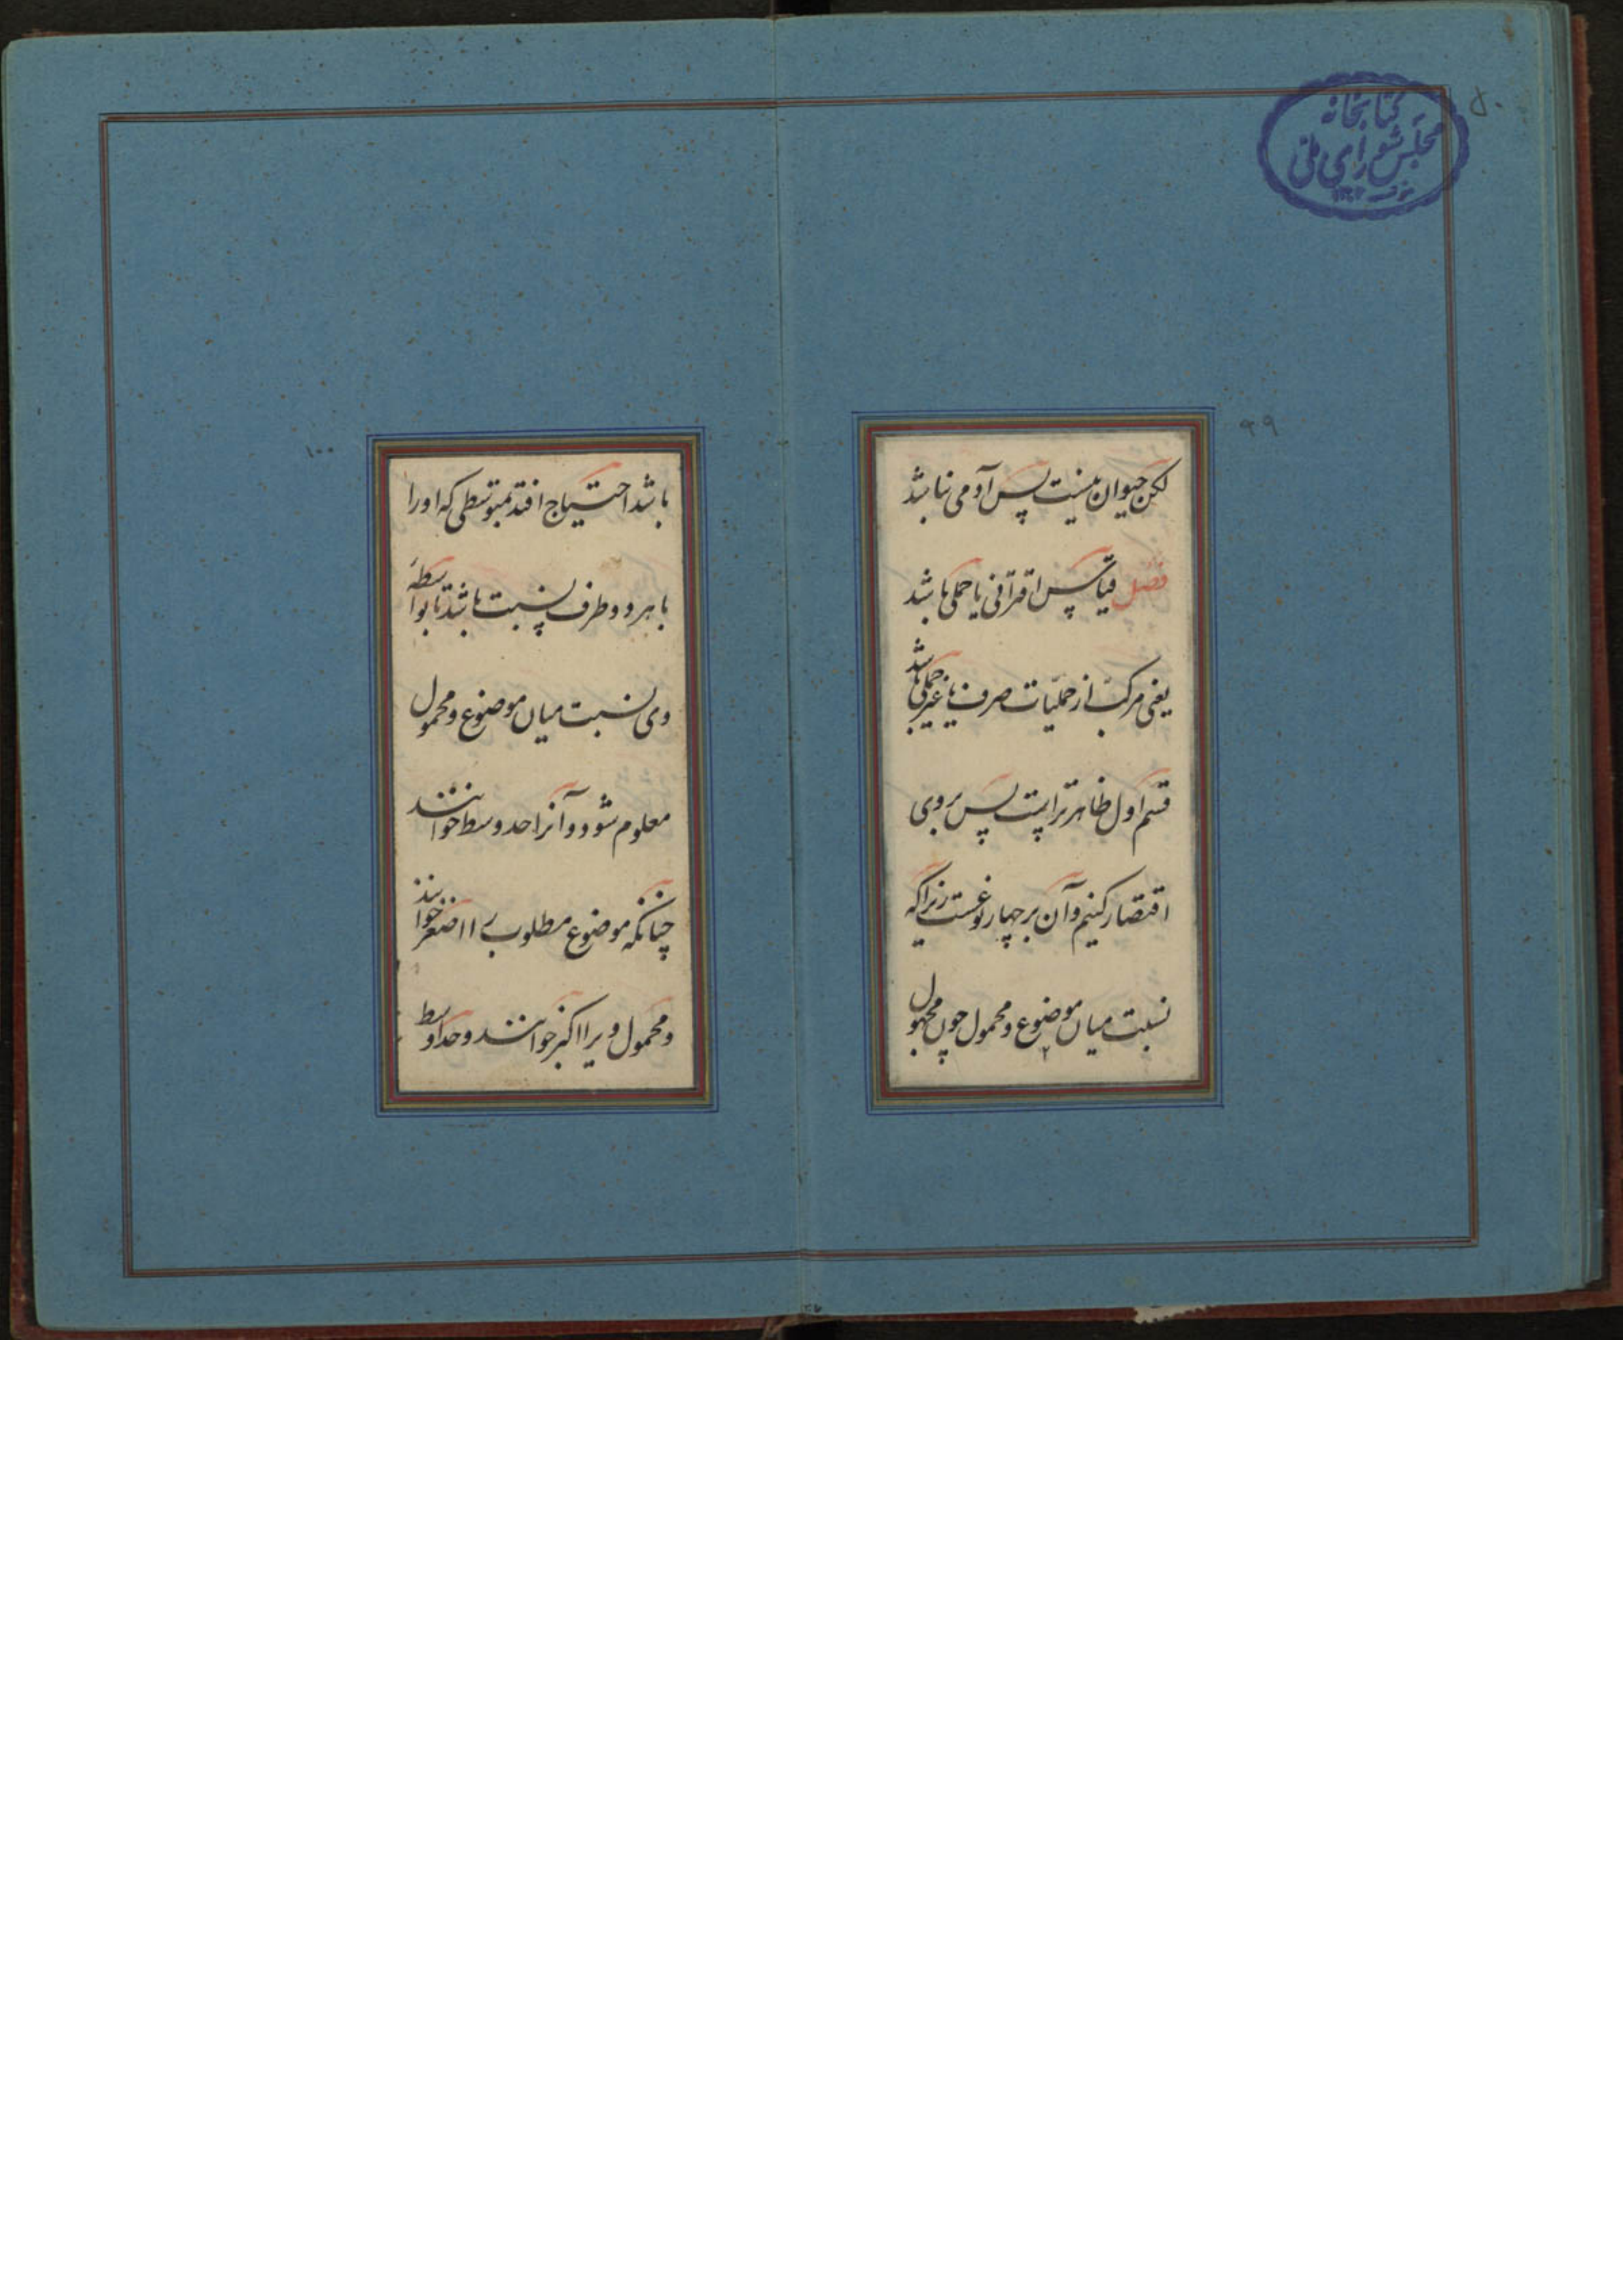 ۵۰
کتابخانه
مجلس شورای ملی
۹۹
لکن حیوان نیست پس آدمی نباشد
فصل قیاس اقترانی یا حملی باشد
یعنی مرکب از حملیات صرف یا غیر حملی باشد
قسم اول ظاهرتر است پس بروی
اقتصار کنیم و آن بر چهار نوعست زیراکه
نسبت میان موضوع و محمول چون مجهول
۱۰۰
باشد احتیاج افتد بمتوسطی که او را
با هر دو طرف نسبت باشد تا بواسطهٔ
وی نسبت میان موضوع و محمول
معلوم شود و آنرا حد وسط خوانند
چنانکه موضوع مطلوب را اصغر خوانند
و محمول ویرا اکبر خوانند و حد اوسط